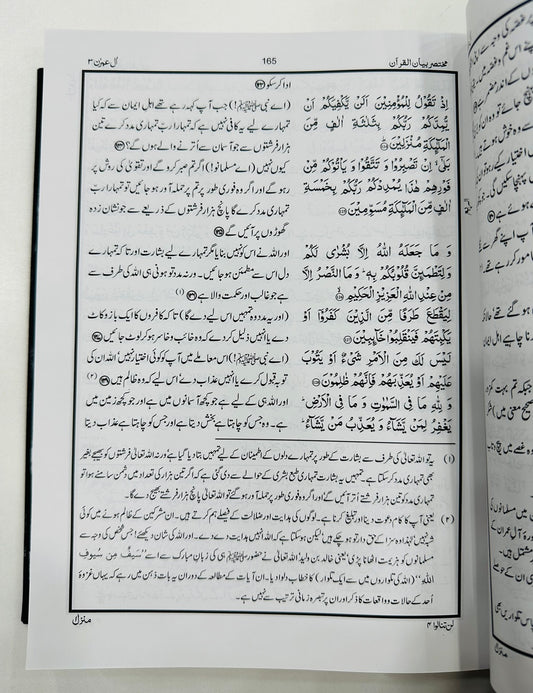 آل عمرٰن ۳
165
مختصر بیان القرآن
ادا کر سکو
اِذْ تَقُوْلُ لِلْمُؤْمِنِيْنَ اَلَنْ يَّكْفِيَكُمْ اَنْ
يُّمِدَّكُمْ رَبُّكُمْ بِثَلٰثَةِ اٰلٰفٍ مِّنَ
الْمَلٰٓئِكَةِ مُنْزَلِيْنَ
(اے نبی ﷺ!) جب آپ کہہ رہے تھے اہل ایمان سے کہ کیا
تمہارے لیے یہ کافی نہیں ہے کہ تمہارا رب تمہاری مدد کرے تین
ہزار فرشتوں سے جو آسمان سے اُترنے والے ہوں گے؟
بَلٰٓى ۙ اِنْ تَصْبِرُوْا وَ تَتَّقُوْا وَ يَاْتُوْكُمْ مِّنْ
فَوْرِهِمْ هٰذَا يُمْدِدْكُمْ رَبُّكُمْ بِخَمْسَةِ
اٰلٰفٍ مِّنَ الْمَلٰٓئِكَةِ مُسَوِّمِيْنَ
کیوں نہیں (اے مسلمانو!) اگر تم صبر کرو گے اور تقویٰ کی روش پر
رہو گے اور اگر وہ فوری طور پر تم پر حملہ آور ہو جائیں تو تمہارا رب
تمہاری مدد کرے گا پانچ ہزار فرشتوں کے ذریعے سے جو نشان زدہ
گھوڑوں پر آئیں گے
وَ مَا جَعَلَهُ اللّٰهُ اِلَّا بُشْرٰى لَكُمْ
وَ لِتَطْمَىِٕنَّ قُلُوْبُكُمْ بِهٖ ؕ وَ مَا النَّصْرُ اِلَّا
مِنْ عِنْدِ اللّٰهِ الْعَزِيْزِ الْحَكِيْمِ
اور اللہ نے اس کو نہیں بنایا مگر تمہارے لیے بشارت اور تاکہ تمہارے
دل اس سے مطمئن ہو جائیں۔ ورنہ مدد تو ہونی ہی اللہ کی طرف سے
ہے جو غالب اور حکمت والا ہے (۱)
لِيَقْطَعَ طَرَفًا مِّنَ الَّذِيْنَ كَفَرُوْٓا اَوْ
يَكْبِتَهُمْ فَيَنْقَلِبُوْا خَآىِٕبِيْنَ
(اور یہ مدد وہ تمہیں اس لیے دے گا) تاکہ کافروں کا ایک بازو کاٹ
دے یا انہیں ذلیل کر دے کہ وہ خائب و خاسر ہو کر لوٹ جائیں
لَيْسَ لَكَ مِنَ الْاَمْرِ شَيْءٌ اَوْ يَتُوْبَ
عَلَيْهِمْ اَوْ يُعَذِّبَهُمْ فَاِنَّهُمْ ظٰلِمُوْنَ
(اے نبی ﷺ!) اس معاملے میں آپ کو کوئی اختیار نہیں اللہ ان کی
توبہ قبول کرے یا انہیں عذاب دے اس لیے کہ وہ ظالم ہیں (۲)
وَ لِلّٰهِ مَا فِي السَّمٰوٰتِ وَ مَا فِي الْاَرْضِ ؕ
يَغْفِرُ لِمَنْ يَّشَآءُ وَ يُعَذِّبُ مَنْ يَّشَآءُ ؕ
اور اللہ ہی کے لیے ہے جو کچھ آسمانوں میں ہے اور جو کچھ زمین میں
ہے۔ وہ جس کو چاہتا ہے بخش دیتا ہے اور جس کو چاہتا ہے عذاب دیتا
(۱) یہ تو اللہ تعالیٰ کی طرف سے بشارت کے طور پر تمہارے دلوں کے اطمینان کے لیے تمہیں بتا دیا گیا ہے ورنہ اللہ تعالیٰ ان فرشتوں کو بھیجے بغیر
بھی تمہاری مدد کر سکتا ہے۔ تمہیں یہ بشارت تمہاری طبع بشری کے حوالے سے دی گئی ہے کہ اگر تین ہزار کی تعداد میں دشمن سامنے ہوا تو
تمہاری مدد کو تین ہزار فرشتے اُتر آئیں گے اور اگر وہ فوری طور پر حملہ آور ہو گئے تو اللہ تعالیٰ پانچ ہزار فرشتے بھیج دے گا۔
(۲) یعنی آپ کا کام دعوت دینا اور تبلیغ کرنا ہے۔ لوگوں کی ہدایت اور ضلالت کے فیصلے ہم کرتے ہیں۔ ان مشرکین کے ظالم ہونے میں کوئی
شبہ نہیں! لہٰذا وہ سزا کے حق دار تو ہو چکے ہیں لیکن ہو سکتا ہے کہ اللہ انہیں ہدایت دے دے۔ اور اللہ کی شان دیکھئے! جس شخص کی وجہ سے
مسلمانوں کو ہزیمت اٹھانا پڑی' یعنی خالد بن ولید' اللہ تعالیٰ نے حضور ﷺ ہی کی زبانِ مبارک سے اسے ''سَیْفٌ مِنْ سُیُوفِ
اللّٰہِ'' (اللہ کی تلواروں میں سے ایک تلوار) کا خطاب دلوا دیا۔ ان آیات کے مطالعہ کے دوران یہ بات ذہن میں رہے کہ یہاں غزوۂ
اُحد کے حالات و واقعات کا ذکر اور ان پر تبصرہ زمانی ترتیب سے نہیں ہے۔
منزل
لن تنالوا ۴